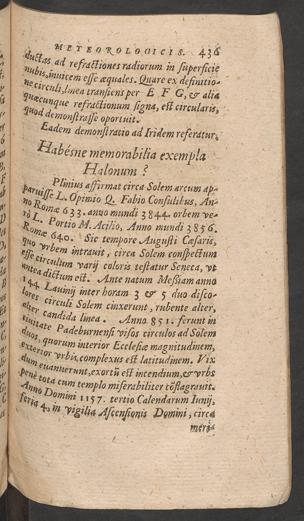 METEOROLOGICIS. 436
ductas ad refractiones radiorum in superficie
nubis, invicem esse æquales. Quare ex definitio-
ne circuli, linea transiens per E F G, & alia
quæcunque refractionum signa, est circularis,
quod demonstrasse oportuit.
Eadem demonstratio ad Iridem referatur.
Habésne memorabilia exempla
Halonum?
Plinius affirmat circa Solem arcum ap-
paruisse L. Opimio Q. Fabio Consulibus, An-
no Romæ 633. anno mundi 3844. orbem ve-
rò L. Portio M. Acilio, Anno mundi 3856.
Romæ 640. Sic tempore Augusti Cæsaris,
quo vrbem intravit, circa Solem conspectum
esse circulum varij coloris testatur Seneca, vt
antea dictum est. Ante natum Messiam anno
144. Lavinij inter horam 3 & 5 duo disco-
lores circuli Solem cinxerunt, rubente alter,
alter candida linea. Anno 851. ferunt in
civitate Padeburnensi visos circulos ad Solem
duos, quorum interior Ecclesiæ magnitudinem,
exterior vrbis complexus est latitudinem. Vix
dum evanuerunt, exortũ est incendium, & vrbs
penè tota cum templo miserabiliter cõflagravit.
Anno Domini 1157. tertio Calendarum Iunij,
feria 4. in vigilia Ascensionis Domini, circa
meri-